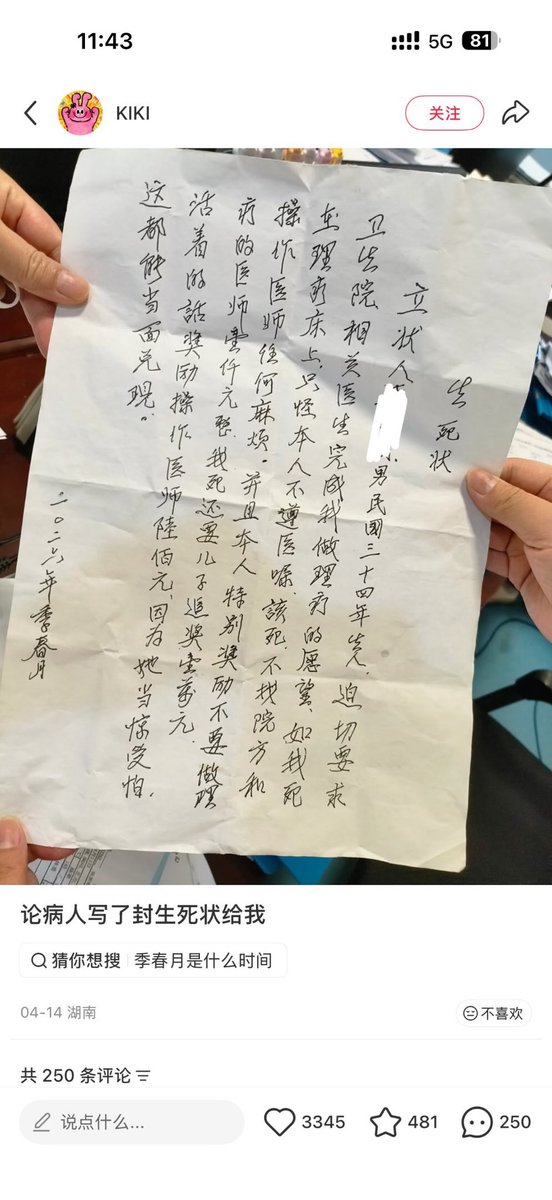 11:43
5G
81
KIKI
关注
生死状
立状人 男民國三十四年生人,迫切要求
卫生院相关医生完成我做理疗的愿望,如我死
在理疗床上,只怪本人不遵医嘱,該死,不找院方和
操作医师任何麻烦。并且本人特别奖励不要做理
疗的医师壹仟元整,我死还要儿子追奖壹萬元,
活着的話奖励操作医师陸佰元,因为她当惊受怕,
这都能当面兑现。
二〇二六年季春月
论病人写了封生死状给我
猜你想搜 季春月是什么时间
04-14 湖南
不喜欢
共 250 条评论
说点什么...
3345
481
250